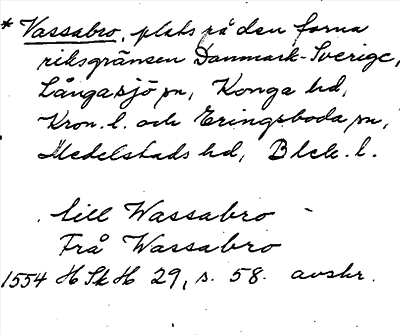 * Vassabro, plats på den forna
riksgränsen Danmark-Sverige,
Långasjö sn, Konga hd,
Kron. l. och Eringsboda sn,
Medelstads hd, Blek. l.
till Wassabro -
Från Wassabro
1554 H Sk H 29, s. 58. avskr.